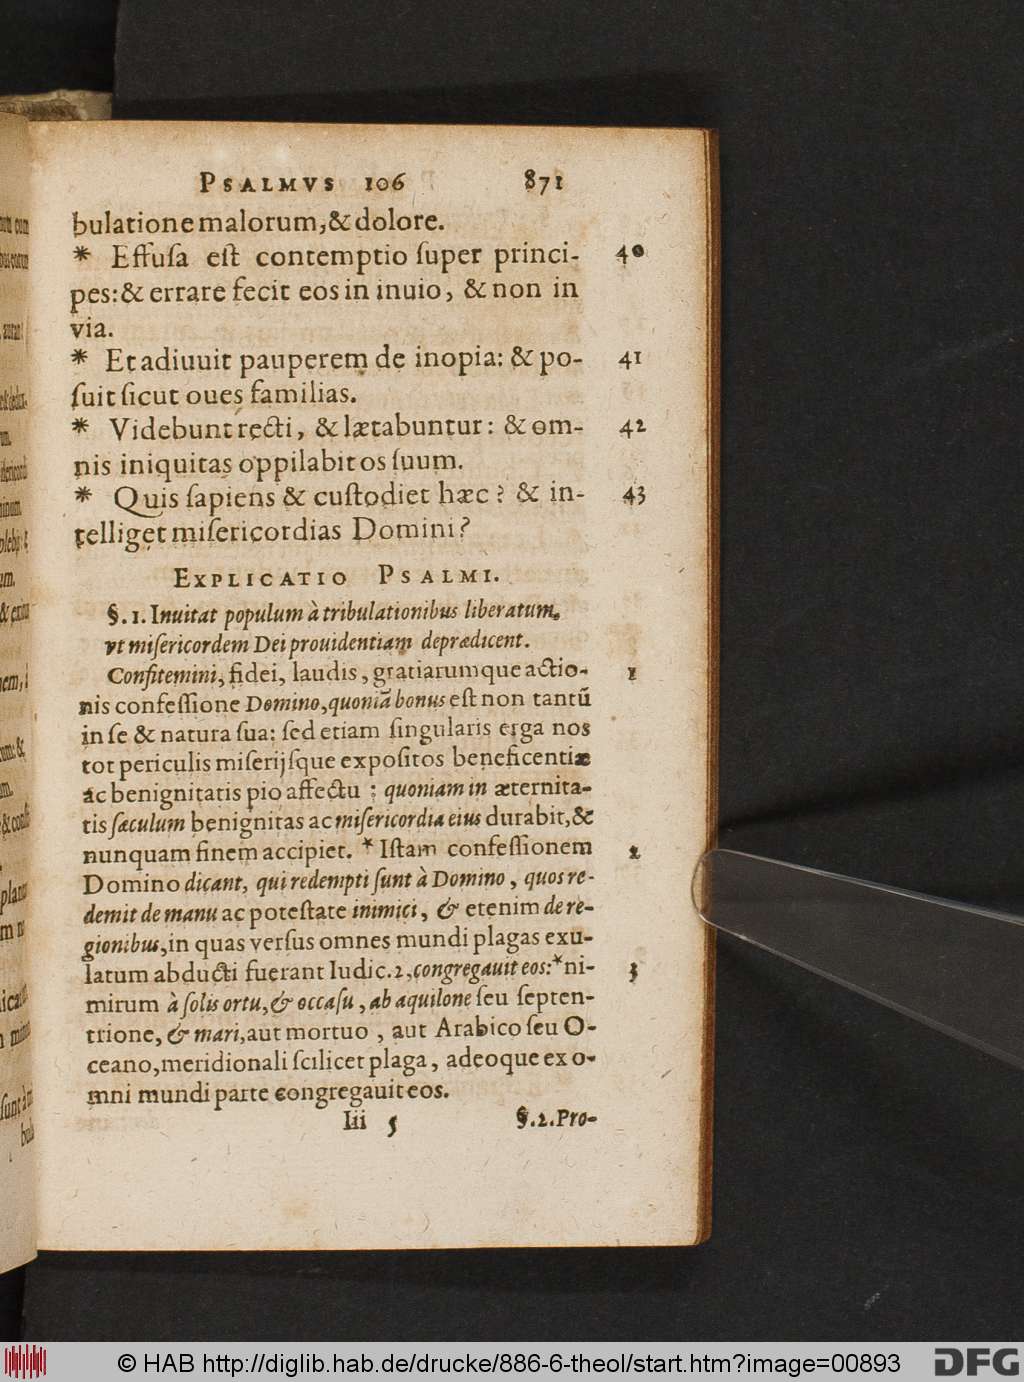 PSALMVS 106 871
bulatione malorum, & dolore.
* Effuſa eſt contemptio ſuper princi- 40
pes: & errare fecit eos in inuio, & non in
via.
* Et adiuuit pauperem de inopia: & po- 41
ſuit ſicut oues familias.
* Videbunt recti, & lætabuntur: & om- 42
nis iniquitas oppilabit os ſuum.
* Quis ſapiens & cuſtodiet hæc? & in- 43
telliget miſericordias Domini?
EXPLICATIO PSALMI.
§. 1. Inuitat populum à tribulationibus liberatum,
vt miſericordem Dei prouidentiam deprædicent.
Confitemini, fidei, laudis, gratiarumque actio- 1
nis confeſſione Domino, quoniã bonus eſt non tantũ
in ſe & natura ſua: ſed etiam ſingularis erga nos
tot periculis miſerijſque expoſitos beneficentiæ
ac benignitatis pio affectu: quoniam in æternita-
tis ſæculum benignitas ac miſericordia eius durabit, &
nunquam finem accipiet. * Iſtam confeſſionem 2
Domino dicant, qui redempti ſunt à Domino, quos re-
demit de manu ac poteſtate inimici, & etenim de re-
gionibus, in quas verſus omnes mundi plagas exu-
latum abducti fuerant Iudic. 2, congregauit eos: * ni- 3
mirum à ſolis ortu, & occaſu, ab aquilone ſeu ſepten-
trione, & mari, aut mortuo, aut Arabico ſeu O-
ceano, meridionali ſcilicet plaga, adeoque ex o-
mni mundi parte congregauit eos.
Iii 5 §. 2. Pro-
© HAB http://diglib.hab.de/drucke/886-6-theol/start.htm?image=00893 DFG